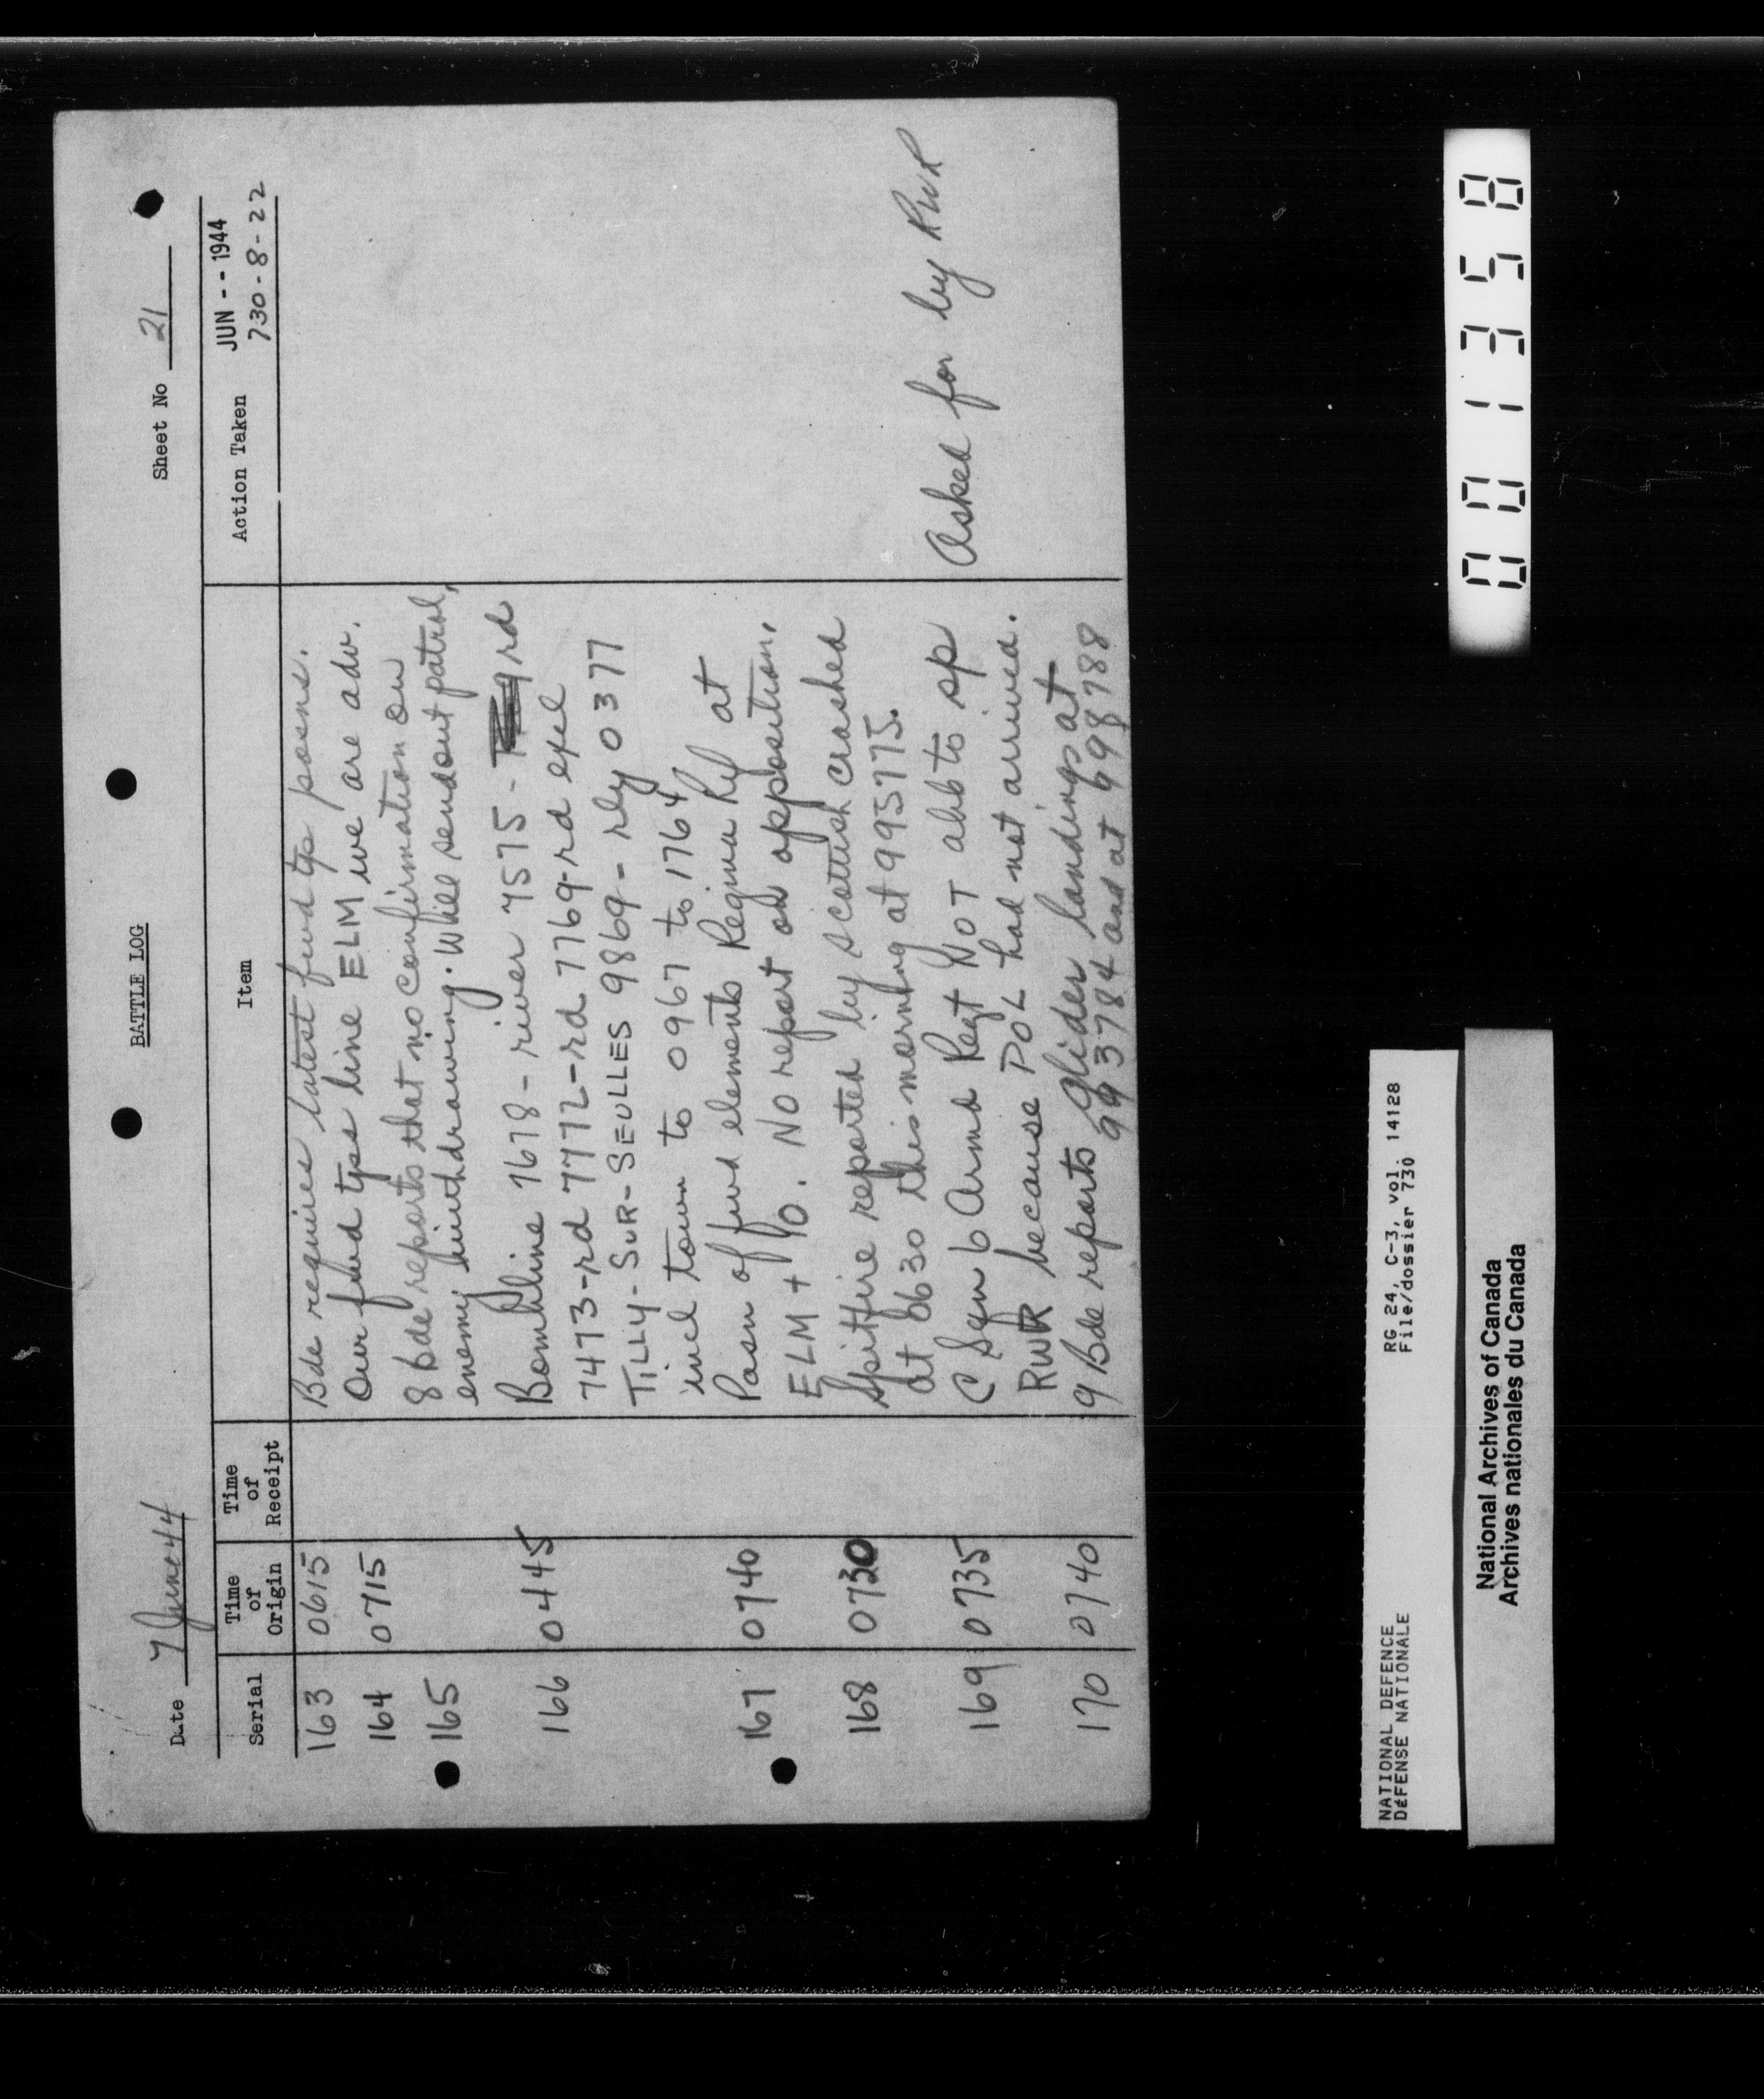 BATTLE LOG
Date 7 June 44
Sheet No 21
Serial
Time of Origin
Time of Receipt
Item
Action Taken
JUN - - 1944
730-8-22
163 0615 Bde requires latest fwd tps posns.
164 0715 Our fwd tps line ELM we are adv.
165 8 Bde reports that no confirmation on
enemy withdrawing. Will send out patrol,
166 0445 Bombline 7678 - river 7575 - rd
7473-rd 7772-rd 7769-rd excl
TILLY-SUR-SEULLES 9869 - rly 0377
incl town to 0967 to 1764
167 0740 Posn of fwd elements Regina Rif at
ELM + 90. No report on opposition.
168 0730 Spitfire reported by scottish crashed
at 0630 this morning at 995775.
169 0735 C Sqn 6 Armd Regt NOT able to sp
RWR because POL had not arrived.
Asked for by RWR
170 0740 9 Bde reports glider landings at
993784 and at 998788
001358
NATIONAL DEFENCE
DéFENSE NATIONALE
RG 24, C-3, vol. 14128
File/dossier 730
National Archives of Canada
Archives nationales du Canada